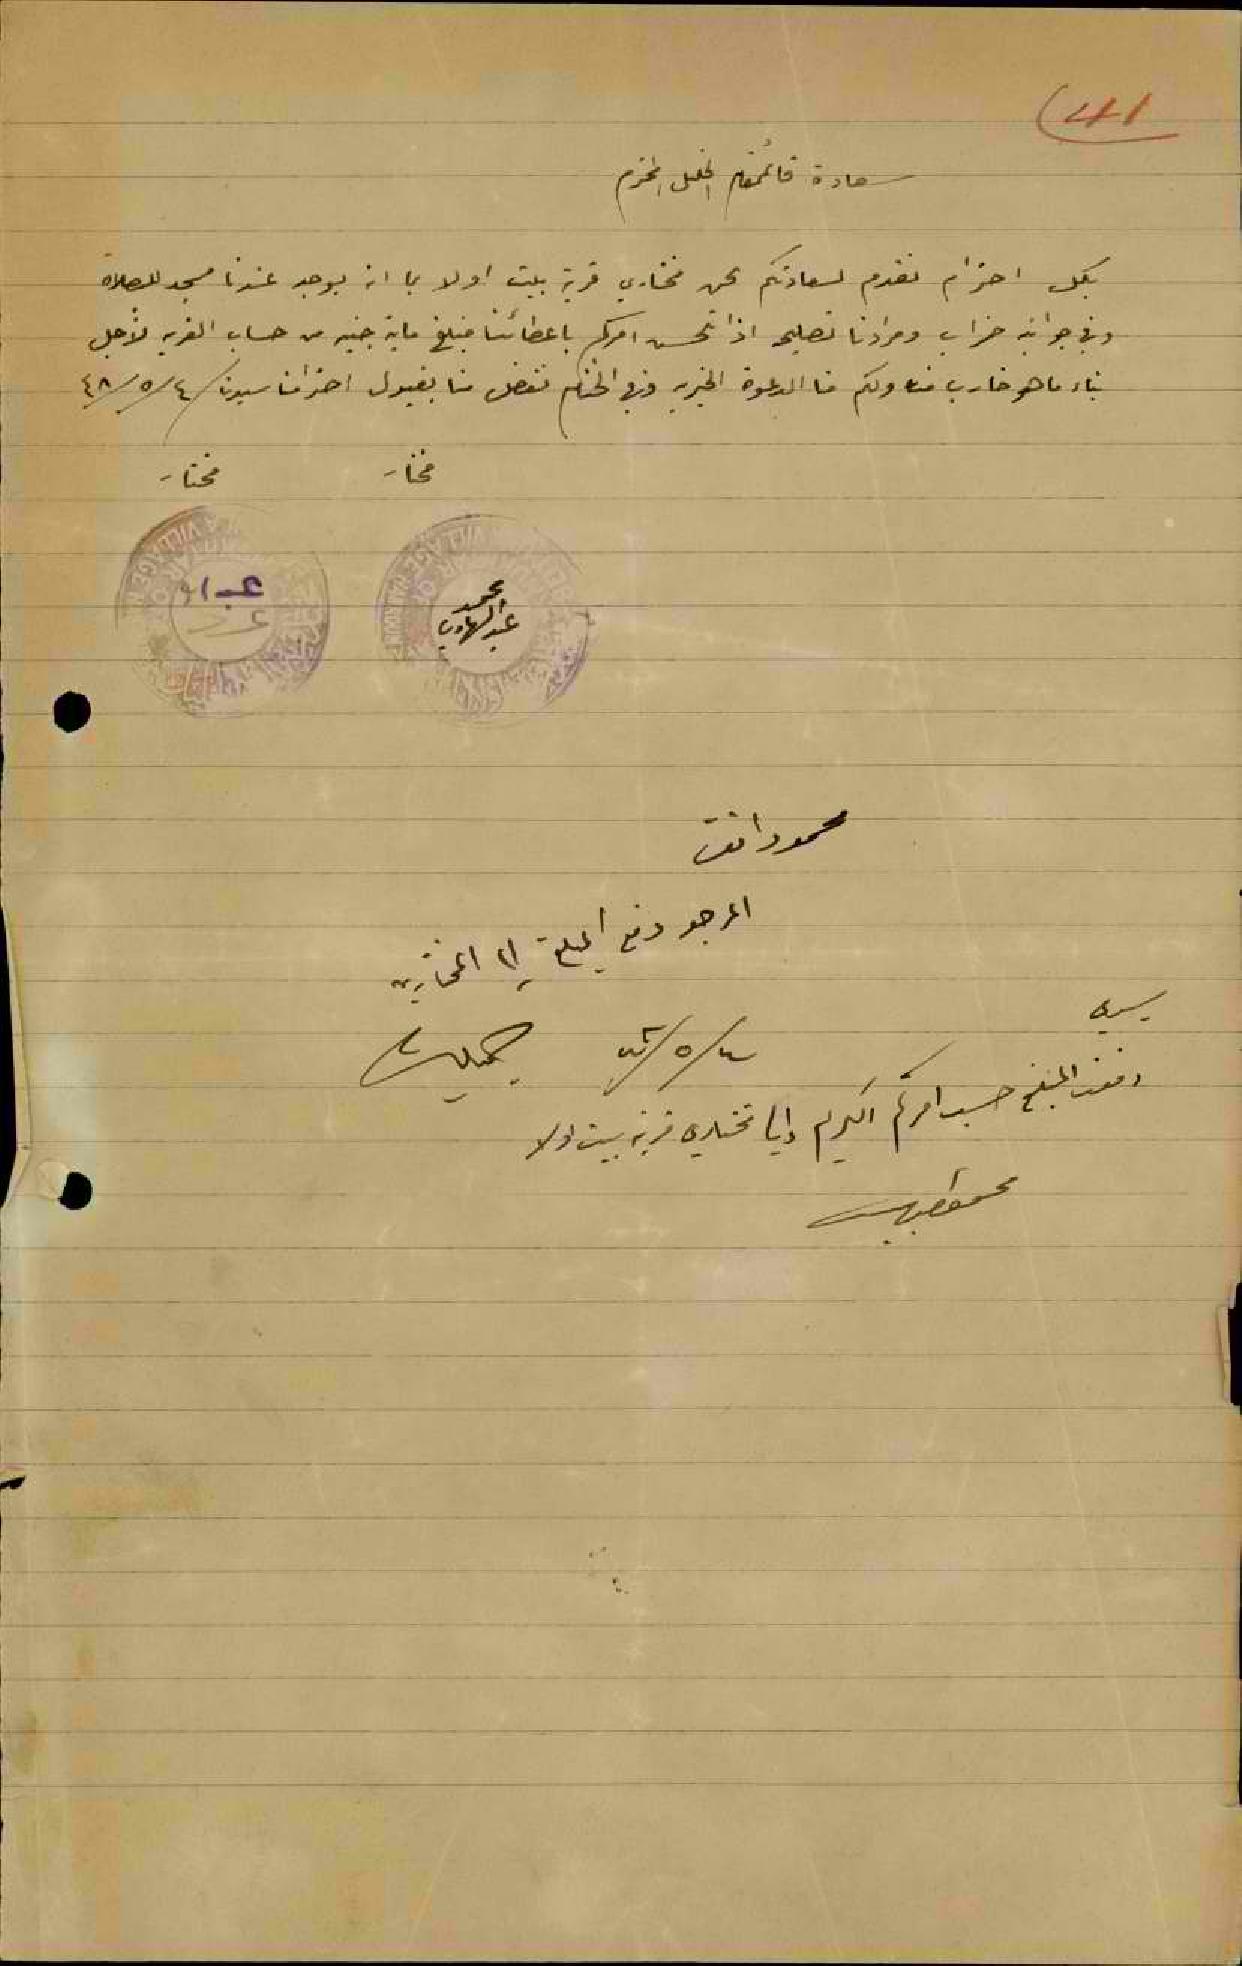 41
سعادة قائمقام الخليل المحترم
بكل احترام نقدم لسعادتكم نحن مختاري قرية بيت اولا بما انه يوجد عندنا مسجد للصلاة
وفي جوانبه خراب ومرادنا تصليحه اذا تحسن امركم باعطائنا مبلغ ماية جنيه من حساب القريه لأجل
بناء ما هو خارب منه ولكم منا الدعوة الخيريه وفي الختام تفضل منا بقبول احترامنا سيدنا ٤/٥/٤٨
مختار مختار
محمد
عبد الهادي
VILLAGE
محمود افندي
المرجو دفع المبلغ الى المختارين
٤/٥/٤٨
سيدي
دفعت المبلغ حسب امركم الكريم الى مختاري قرية بيت اولا